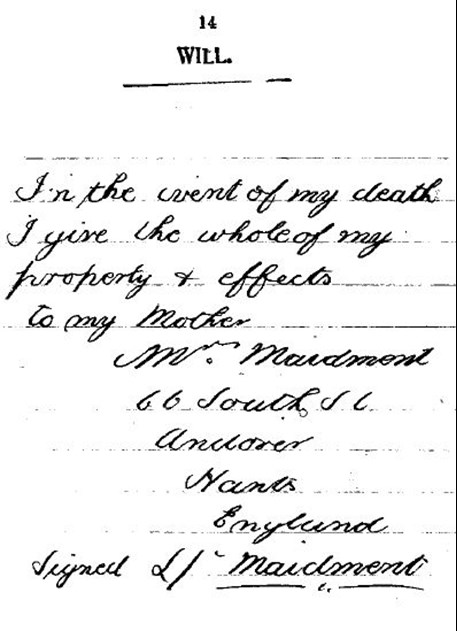 14
WILL.
In the event of my death
I give the whole of my
property & effects
to my Mother
Mrs. Maidment
66 South St
Andover
Hants
England
Signed Maidment